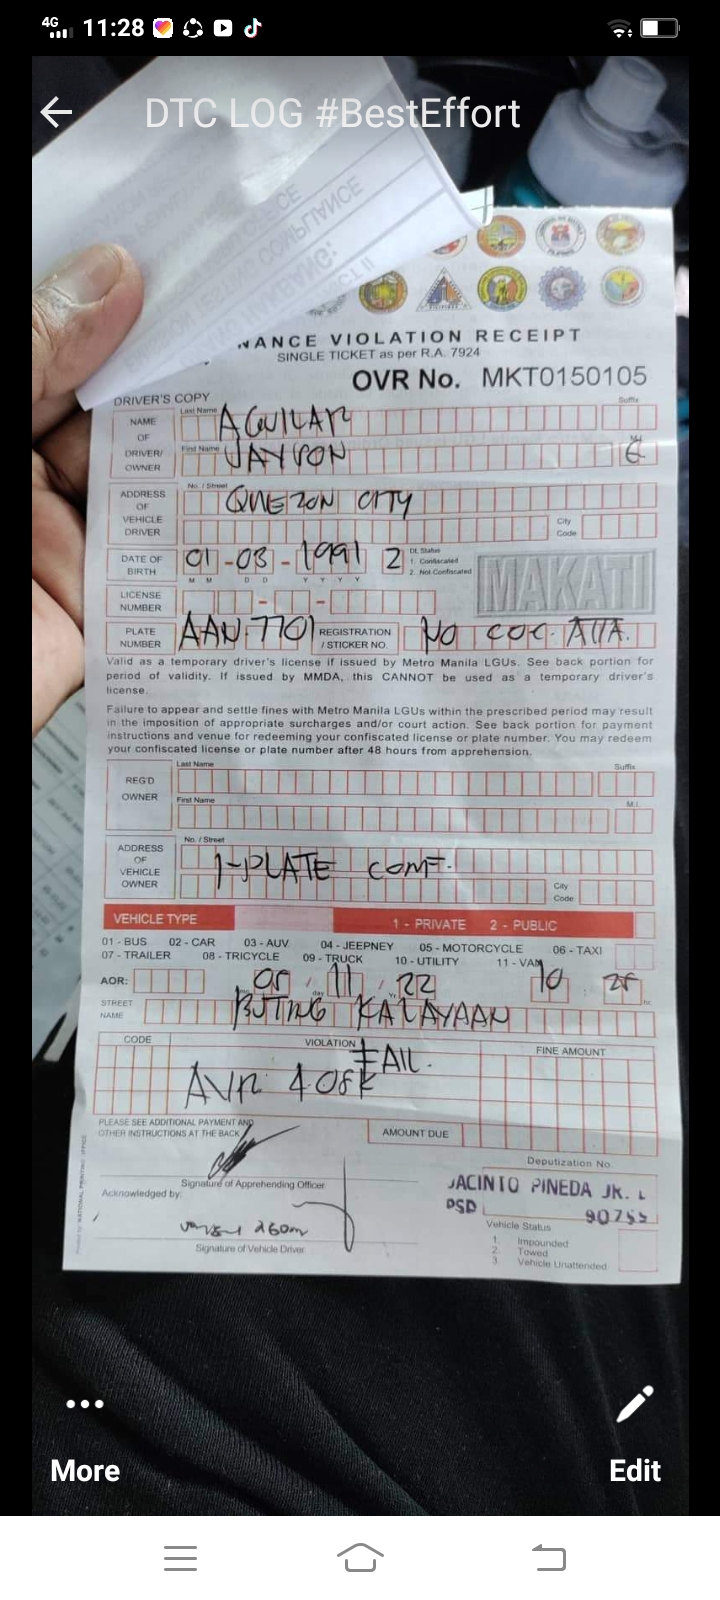 4G 11:28
DTC LOG #BestEffort
COMPLIANCE
NANCE VIOLATION RECEIPT
SINGLE TICKET as per R.A. 7924
OVR No. MKT0150105
DRIVER'S COPY
Last Name Suffix
NAME OF DRIVER/ OWNER
AGUILAR
First Name
JAYSON G
ADDRESS OF VEHICLE DRIVER
No. / Street
QUEZON CITY
City Code
DATE OF BIRTH 01-03-1991 2
DL Status
1. Confiscated
2. Not Confiscated
M M D D Y Y Y Y
MAKATI
LICENSE NUMBER
PLATE NUMBER AAN.7701 REGISTRATION / STICKER NO. NO COC. ATTA.
Valid as a temporary driver's license if issued by Metro Manila LGUs. See back portion for
period of validity. If issued by MMDA, this CANNOT be used as a temporary driver's
license.
Failure to appear and settle fines with Metro Manila LGUs within the prescribed period may result
in the imposition of appropriate surcharges and/or court action. See back portion for payment
instructions and venue for redeeming your confiscated license or plate number. You may redeem
your confiscated license or plate number after 48 hours from apprehension.
Last Name Suffix
REG'D OWNER
First Name M.I.
No. / Street
ADDRESS OF VEHICLE OWNER
1-PLATE CONF.
City Code
VEHICLE TYPE 1 - PRIVATE 2 - PUBLIC
01 - BUS 02 - CAR 03 - AUV 04 - JEEPNEY 05 - MOTORCYCLE 06 - TAXI
07 - TRAILER 08 - TRICYCLE 09 - TRUCK 10 - UTILITY 11 - VAN
AOR: 05 / 11 / 22 10
STREET NAME BUTING KALAYAAN
CODE VIOLATION FINE AMOUNT
FAIL.
AVR 4.08K
PLEASE SEE ADDITIONAL PAYMENT AND
OTHER INSTRUCTIONS AT THE BACK
AMOUNT DUE
Deputization No.
Signature of Apprehending Officer
JACINTO PINEDA JR. L
PSD 90755
Acknowledged by:
Signature of Vehicle Driver
Vehicle Status
1. Impounded
2. Towed
3. Vehicle Unattended
More Edit